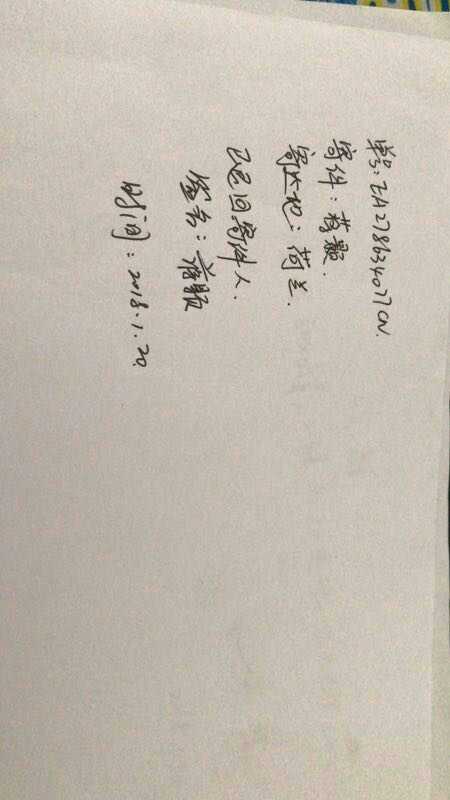 单号: LA278634077CN.
寄件: 蒋
寄达地: 荷兰.
已退回寄件人.
签名: 蒋
时间: 2018.1.20.